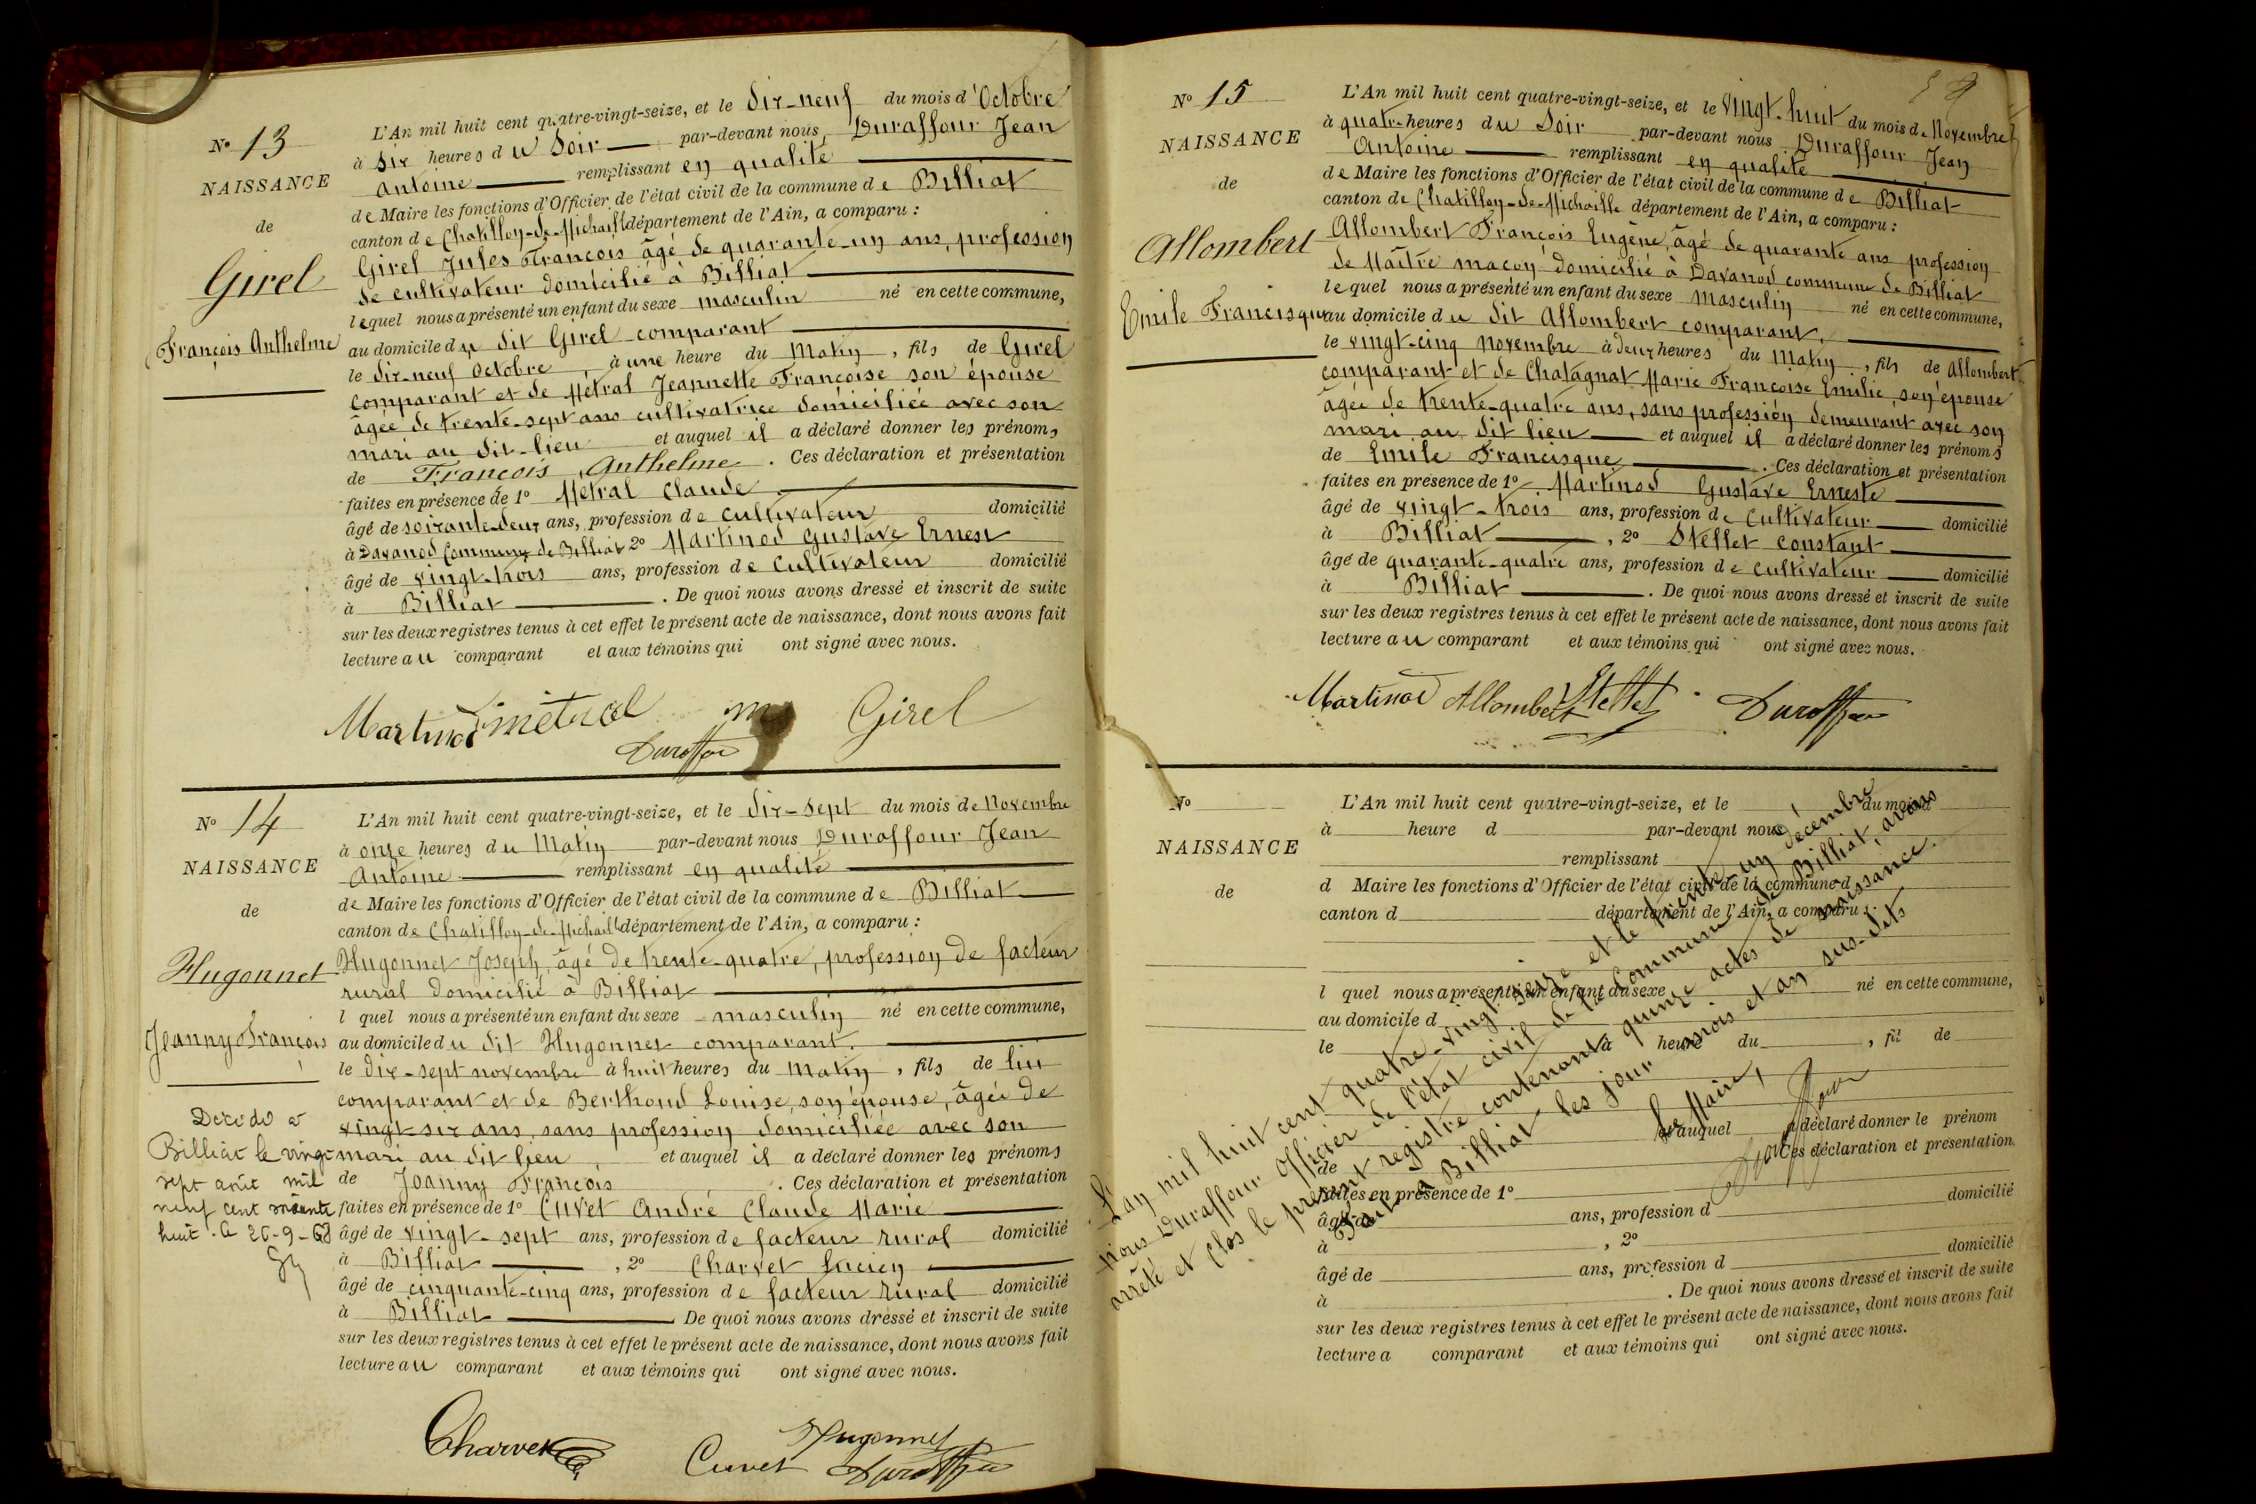 N° 13
NAISSANCE
de
Girel
François Anthelme
L'An mil huit cent quatre-vingt-seize, et le dix-neuf du mois d'Octobre
à six heures du Soir par-devant nous, Duraffour Jean
Antoine remplissant en qualité
de Maire les fonctions d'Officier de l'état civil de la commune de Billiat
canton de Chatillon-de-Michaille département de l'Ain, a comparu :
Girel Jules François âgé de quarante-un ans, profession
de cultivateur domicilié à Billiat
lequel nous a présenté un enfant du sexe masculin né en cette commune,
au domicile du dit Girel comparant
le dix-neuf Octobre, à une heure du Matin, fils de Girel
comparant et de Métral Jeannette Françoise son épouse
âgée de trente-sept ans cultivatrice domiciliée avec son
mari au dit-lieu et auquel il a déclaré donner les prénoms
de François, Anthelme. Ces déclaration et présentation
faites en présence de 1° Métral Claude
âgé de soixante-deux ans, profession de cultivateur domicilié
à Davanod Commune de Billiat 2° Martinod Gustave Ernest
âgé de vingt-trois ans, profession de cultivateur domicilié
à Billiat. De quoi nous avons dressé et inscrit de suite
sur les deux registres tenus à cet effet le présent acte de naissance, dont nous avons fait
lecture au comparant et aux témoins qui ont signé avec nous.
Martinod métral Girel
Duraffour
N° 14
NAISSANCE
de
Hugonnet
Jeanny François
Décédé à
Billiat le vingt
sept août mil
neuf cent soixante
huit. Le 26-9-68
L'An mil huit cent quatre-vingt-seize, et le dix-sept du mois de Novembre
à onze heures du Matin par-devant nous Duraffour Jean
Antoine remplissant en qualité
de Maire les fonctions d'Officier de l'état civil de la commune de Billiat
canton de Chatillon-de-Michaille département de l'Ain, a comparu :
Hugonnet Joseph, âgé de trente-quatre, profession de facteur
rural domicilié à Billiat
l quel nous a présenté un enfant du sexe masculin né en cette commune,
au domicile du dit Hugonnet comparant.
le dix-sept novembre à huit heures du Matin, fils de lui
comparant et de Berthoud Louise, son épouse, âgée de
vingt-six ans, sans profession domiciliée avec son
mari au dit lieu, et auquel il a déclaré donner les prénoms
de Joanny François. Ces déclaration et présentation
faites en présence de 1° Cuvet André Claude Marie
âgé de vingt-sept ans, profession de facteur rural domicilié
à Billiat, 2° Charvet Lucien
âgé de cinquante-cinq ans, profession de facteur rural domicilié
à Billiat De quoi nous avons dressé et inscrit de suite
sur les deux registres tenus à cet effet le présent acte de naissance, dont nous avons fait
lecture au comparant et aux témoins qui ont signé avec nous.
Charvet Hugonnet
Cuvet Duraffour
N° 15
NAISSANCE
de
Allombert
Emile Francisque
L'An mil huit cent quatre-vingt-seize, et le vingt-huit du mois de Novembre
à quatre heures du Soir par-devant nous Duraffour Jean
Antoine remplissant en qualité
de Maire les fonctions d'Officier de l'état civil de la commune de Billiat
canton de Chatillon-de-Michaille département de l'Ain, a comparu :
Allombert François Eugène, âgé de quarante ans profession
de Maître maçon domicilié à Davanod commune de Billiat
lequel nous a présenté un enfant du sexe Masculin né en cette commune,
au domicile du dit Allombert comparant,
le vingt-cinq novembre à deux heures du Matin, fils de Allombert
comparant et de Chatagnat Marie Françoise Emilie, son épouse
âgée de trente-quatre ans, sans profession demeurant avec son
mari au dit lieu et auquel il a déclaré donner les prénoms
de Emile Francisque. Ces déclaration et présentation
faites en présence de 1° Martinod Gustave Erneste
âgé de vingt-trois ans, profession de cultivateur domicilié
à Billiat, 2° Stellet constant
âgé de quarante-quatre ans, profession de cultivateur domicilié
à Billiat. De quoi nous avons dressé et inscrit de suite
sur les deux registres tenus à cet effet le présent acte de naissance, dont nous avons fait
lecture au comparant et aux témoins qui ont signé avec nous.
Martinod Allombert Stellet Duraffour
N°
NAISSANCE
de
L'An mil huit cent quatre-vingt-seize, et le du mois d
à heure d par-devant nous
remplissant
d Maire les fonctions d'Officier de l'état civil de la commune d
canton d département de l'Ain, a comparu :
l quel nous a présenté un enfant du sexe né en cette commune,
au domicile d
le à heure du, fil de
et auquel a déclaré donner le prénom
de Ces déclaration et présentation
faites en présence de 1°
âgé de ans, profession d domicilié
à, 2°
âgé de ans, profession d domicilié
à. De quoi nous avons dressé et inscrit de suite
sur les deux registres tenus à cet effet le présent acte de naissance, dont nous avons fait
lecture a comparant et aux témoins qui ont signé avec nous.
L'an mil huit cent quatre-vingt-seize et le trente-un décembre
nous Duraffour Officier de l'état civil de la Commune de Billiat, avons
arrêté et clos le présent registre contenant quinze actes de naissance.
Fait à Billiat les jour mois et an sus-dits
Le Maire,